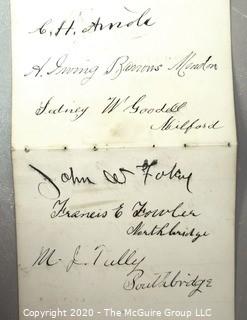 C. H. Arnold
A. Irving Barrows Mendon
Sidney W Goodell
Milford
John W Foley
Francis E Fowler
Northbridge
M. J. Tully
Southbridge
Copyright 2020 - The McGuire Group, LLC